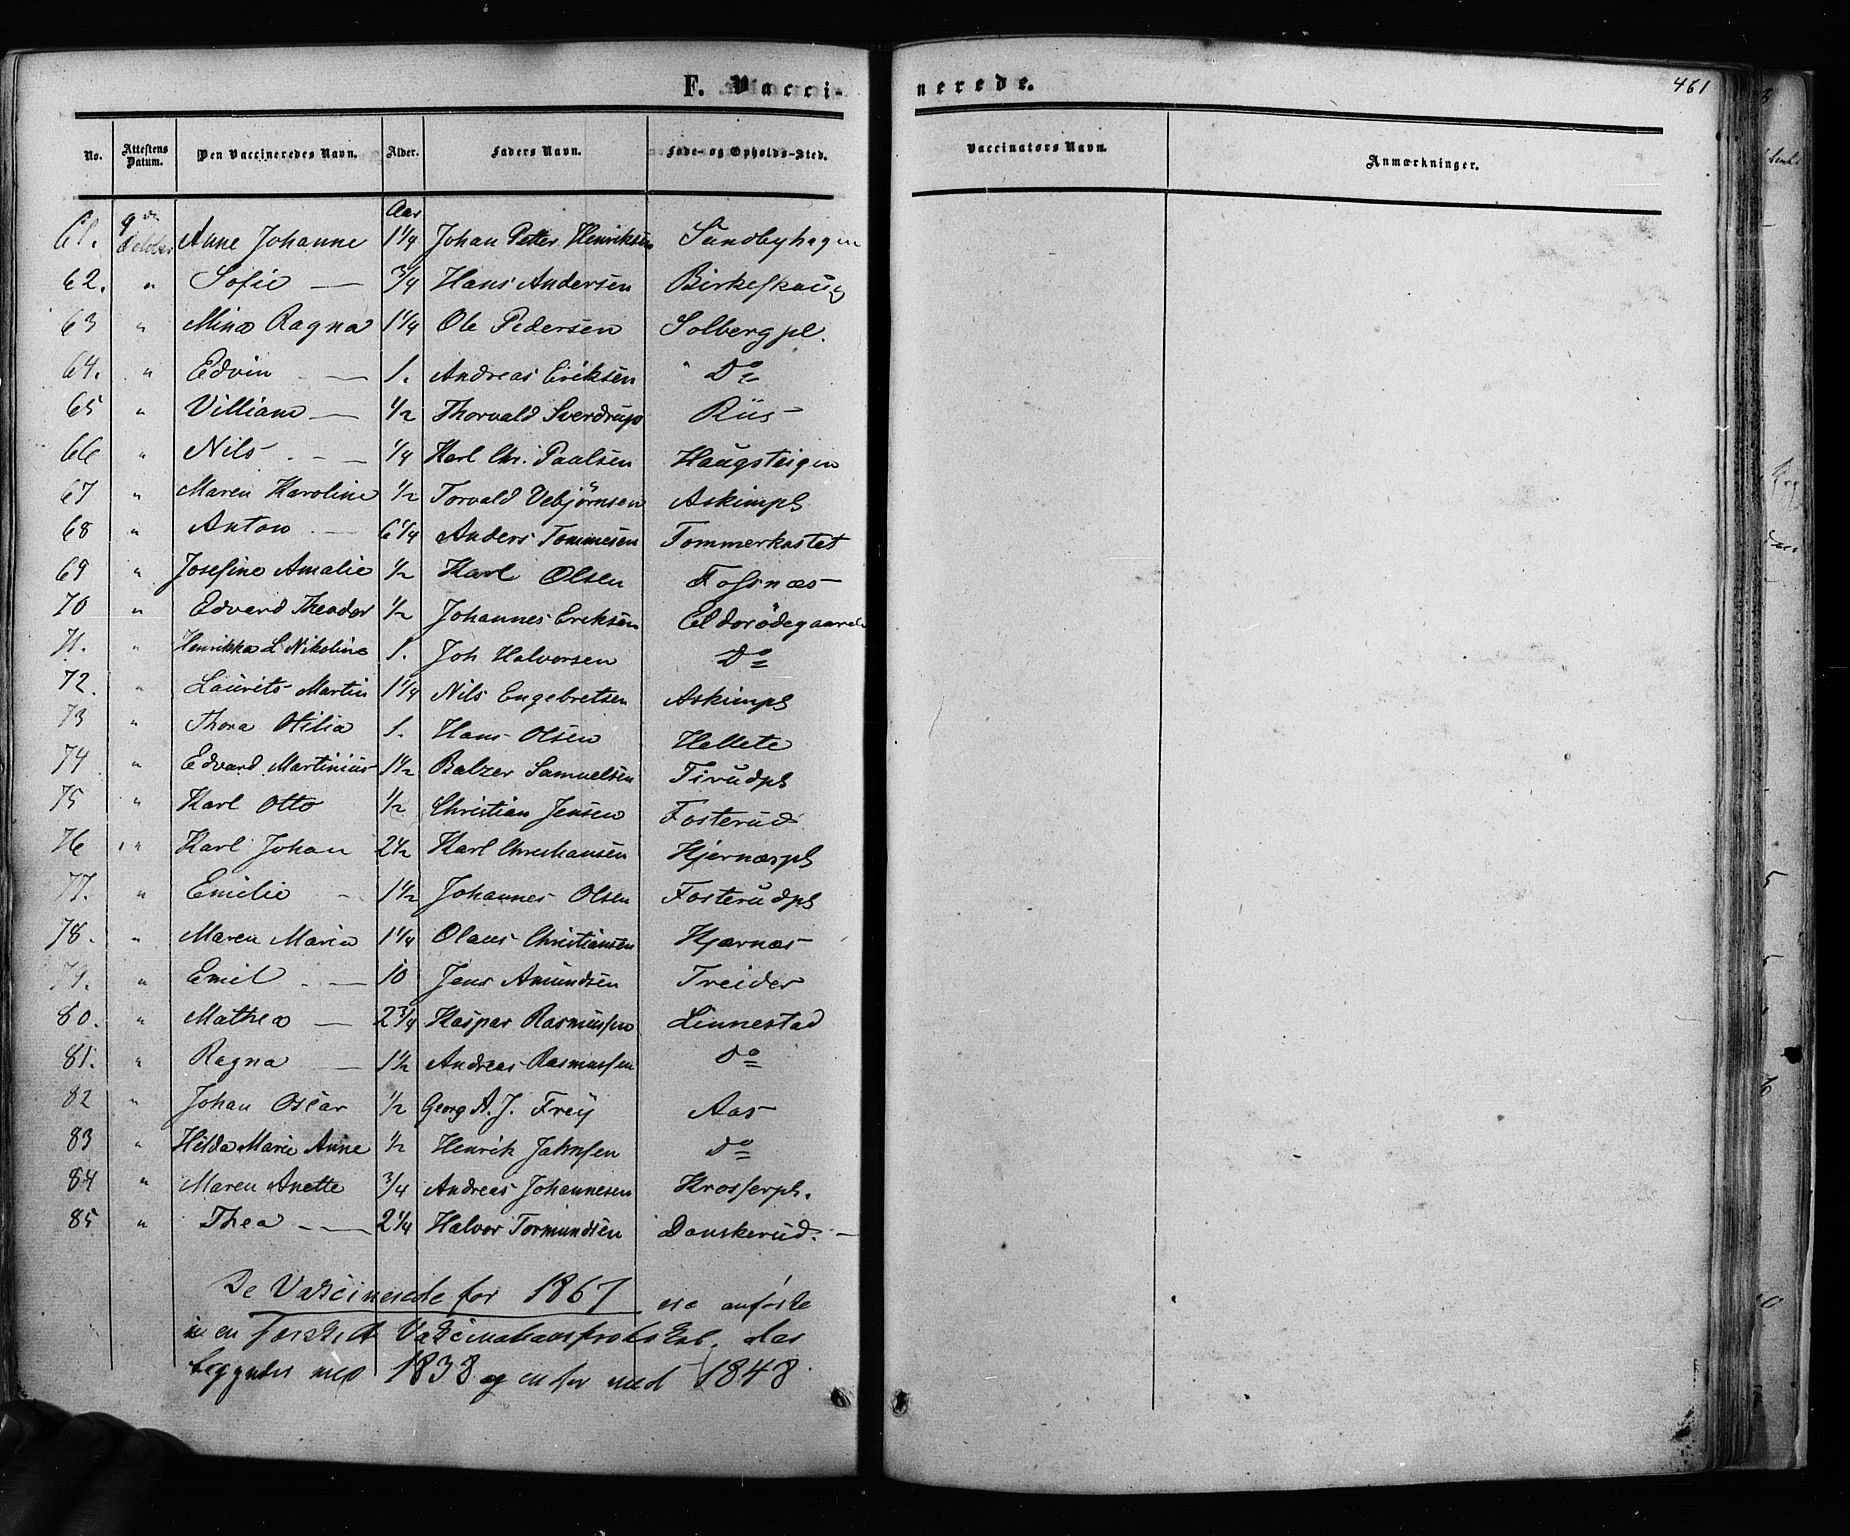 F. Vacci-
nerede.
461
No. Attestens Datum. Den Vaccineredes Navn. Alder. Faders Navn. Føde- og Opholds-Sted.
Vaccinators Navn. Anmærkninger.
Aar
61. 9de Anne Johanne 1 1/4 Johan Petter Henriksen Sundbyhagen
62. " Sofie — 3/4 Hans Andersen Birkeskoug
63 " Mina Ragna 1 1/4 Ole Pedersen Solbergpl.
64. " Edvin — 1. Andreas Eriksen Do
65 " Villiam — 1/2 Thorvald Sverdrup Riis
66 " Nils — 1/4 Karl Chr. Paulsen Haugsteigen
67 " Maren Karoline 1/2 Torvald Vebjørnsen Askimpl
68 " Anton — 6 1/4 Anders Tommesen Tommerkastet
69 " Josefine Amalie 1/2 Karl Olsen Fossnæs
70 " Edvard Theodor 1/2 Johannes Eriksen Eldorödegaarde
71. " Henrikka L Nikoline 1. Joh Halvorsen Do
72. " Laurits Martin 1 1/4 Nils Engebretsen Askimpl
73 " Thora Otilia 1. Hans Olsen Hellete
74 " Edvard Martinius 1 1/2 Balzer Samuelsen Tirudpl
75 " Karl Otto 1/2 Christian Jensen Fosterud
76 " Karl Johan 2 1/2 Karl Christiansen Hjernæspl
77. " Emilie 1 1/2 Johannes Olsen Fosterudpl
78. " Maren Maria 1 1/4 Olaus Christiansen Hjærnæs
79. " Emil — 10 Jens Amundsen Treider
80. " Mathea — 2 3/4 Kaspar Rasmussen Linnestad
81. " Ragna — 1 1/2 Andreas Rasmussen do
82 " Johan Oscar 1/2 Georg A. J. Frey Aas
83 " Hilda Marie Anne 1/2 Henrik Jahnsen do
84 " Maren Anette 3/4 Andreas Johannesen Krosserpl.
85 " Thea — 2 1/4 Halvor Tormundsen Danskerud. —
De Vakcinerede for 1867 ere anførte
i en særskilt Vakcinationsprotokol, der
begynder med 1838 og en for med 1848.